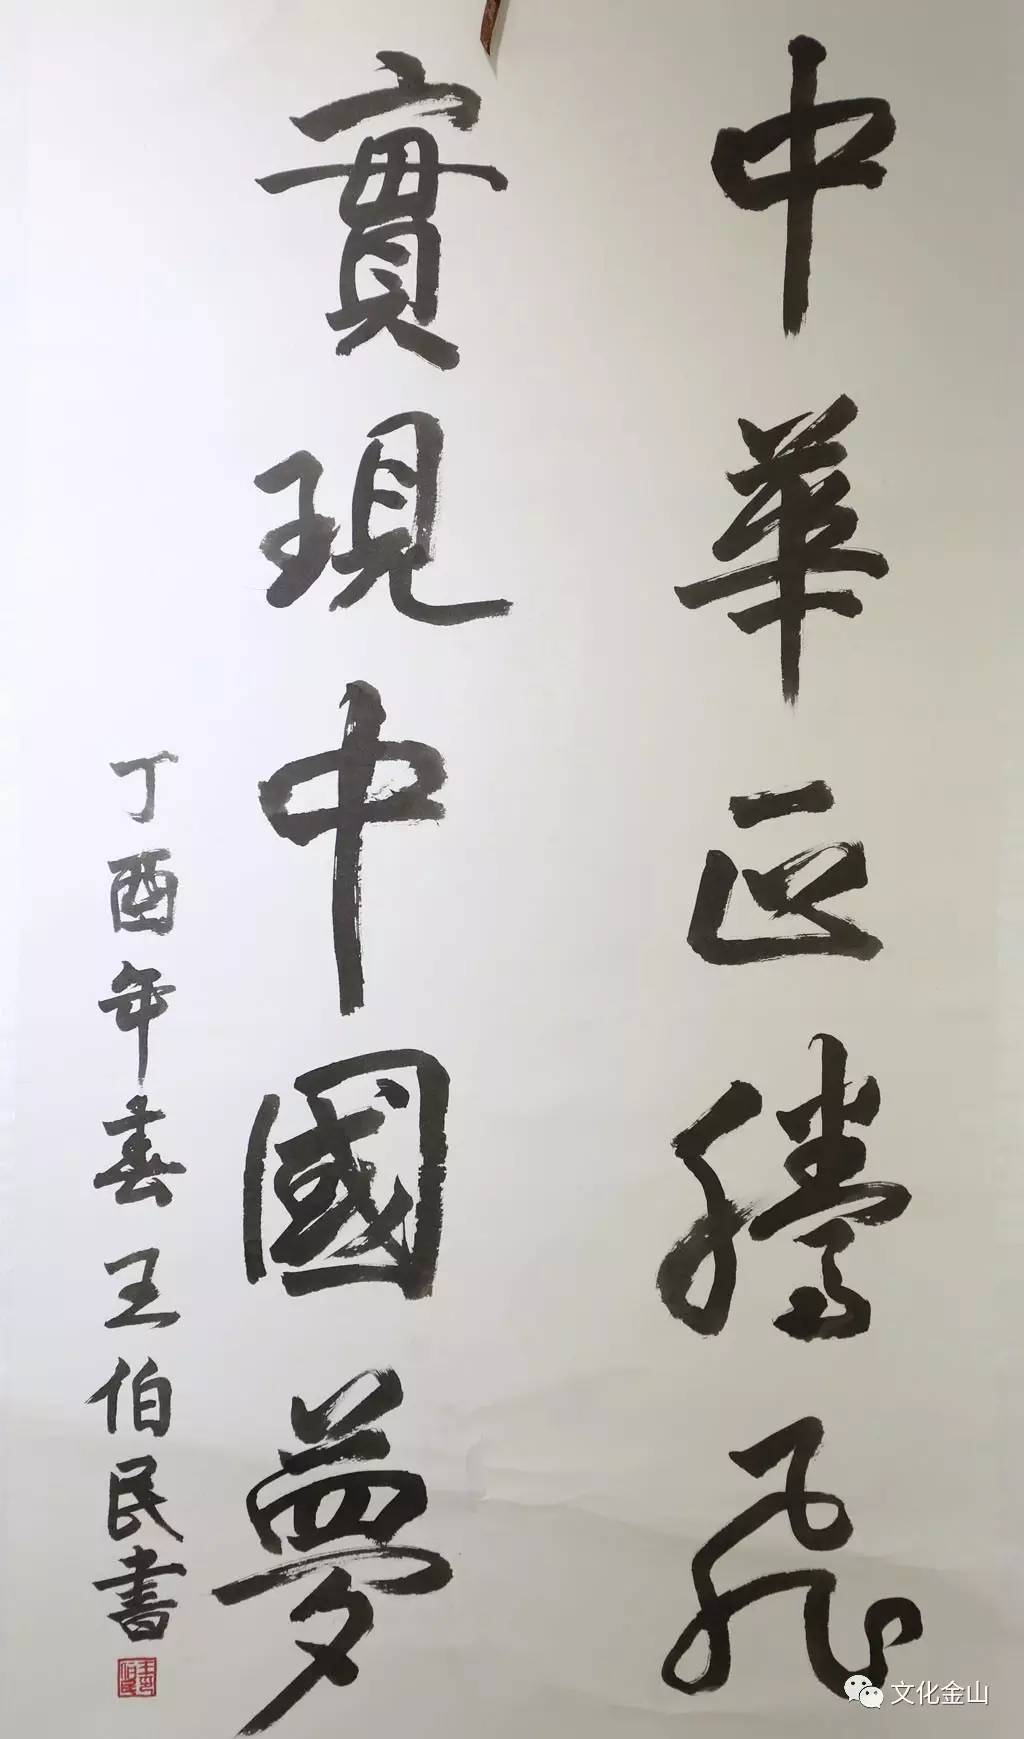 中華正騰飛
實現中國夢
丁酉年春王伯民書
文化金山